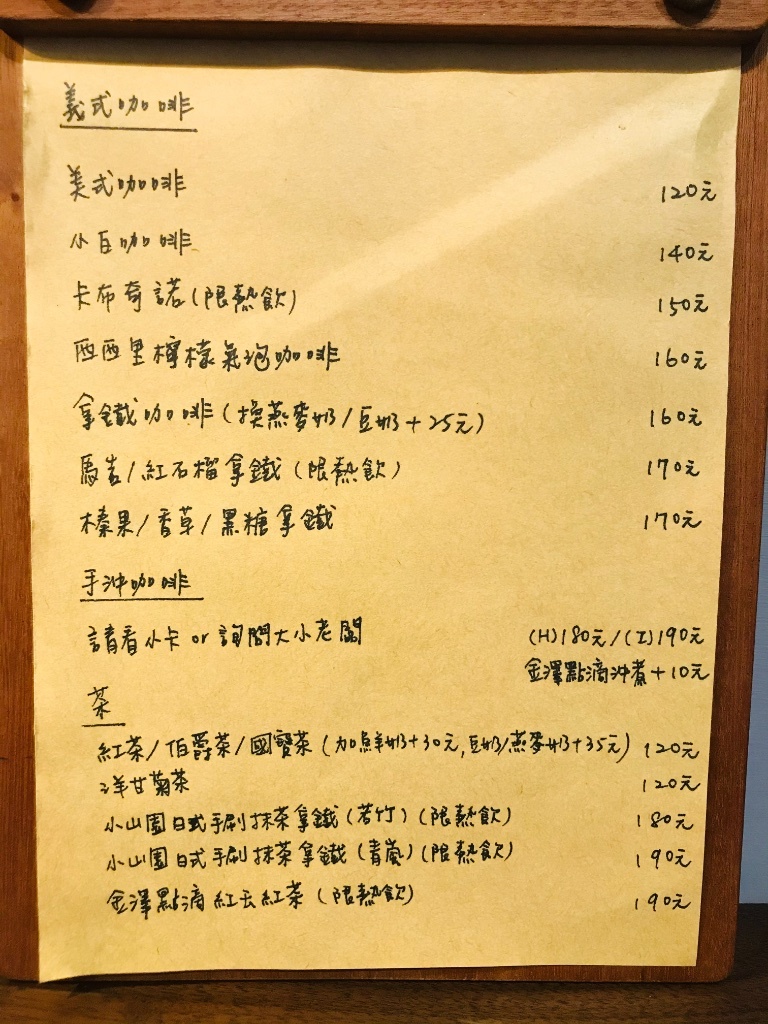 義式咖啡
美式咖啡 120元
小白咖啡 140元
卡布奇諾(限熱飲) 150元
西西里檸檬氣泡咖啡 160元
拿鐵咖啡(換燕麥奶/豆奶+25元) 160元
焦吉/紅石榴拿鐵(限熱飲) 170元
榛果/香草/黑糖拿鐵 170元
手沖咖啡
請看小卡 or 詢問大小老闆 (H)180元/(I)190元
金澤點滴沖煮+10元
茶
紅茶/伯爵茶/國寶茶(加鮮奶+30元,豆奶/燕麥奶+35元) 120元
洋甘菊茶 120元
小山園日式手刷抹茶拿鐵(若竹)(限熱飲) 180元
小山園日式手刷抹茶拿鐵(青嵐)(限熱飲) 190元
金澤點滴紅玉紅茶(限熱飲) 190元